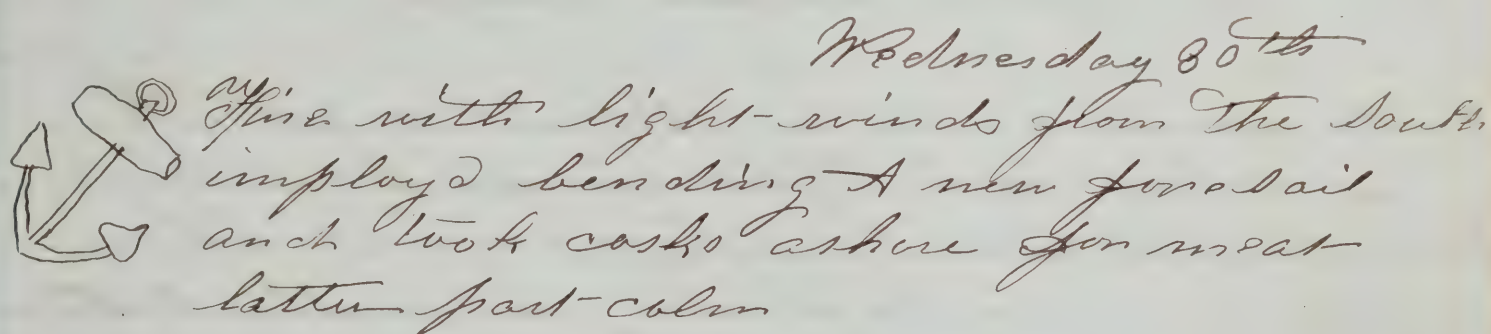 Wednesday 30th
Fine with light winds from the South
imployd bending A new foresail
and took casks ashore for meat
latter part calm